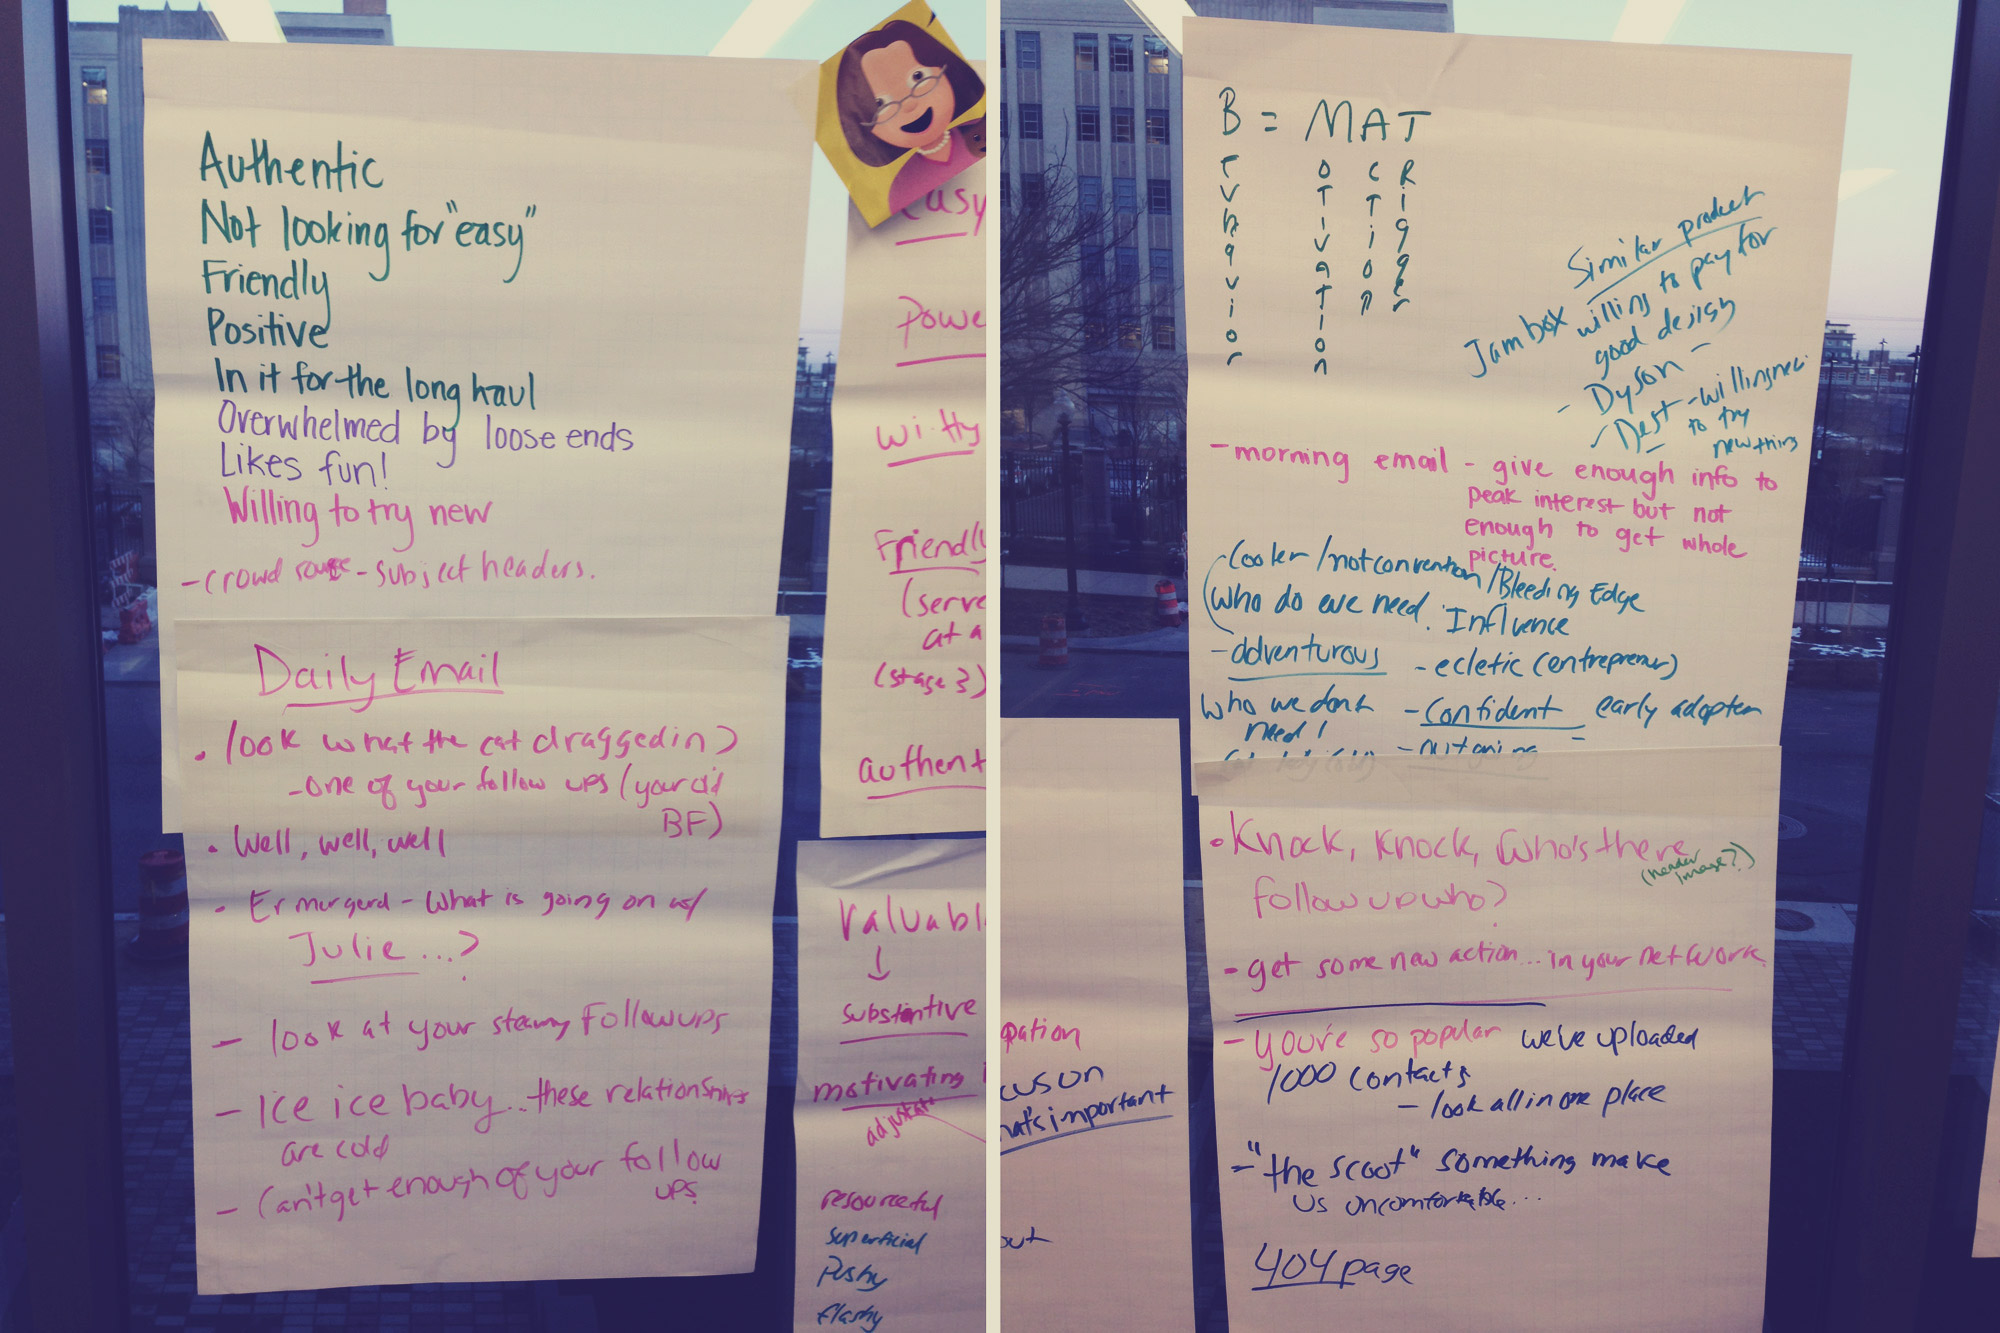 Authentic
Not looking for "easy"
Friendly
Positive
In it for the long haul
Overwhelmed by loose ends
Likes fun!
Willing to try new
- Crowd - subject headers.
Daily Email
• look what the cat dragged in?
- one of your follow ups (your old
BF)
• Well, well, well
• Ermurgerd - What is going on w/
Julie...?
- look at your steamy follow ups
- Ice ice baby... these relationships
are cold
- Can't get enough of your follow
ups
easy
Powe
witty
Friendly
(serve
at a
(stage 3)
authent
Valuabl
↓
substantive
motivating
resourceful
superficial
Pushy
flashy
B = MAT
Behavior
Motivation
Action
Trigger
Similar product
Jambox willing to pay for
good design
- Dyson -
- Nest - willingness
to try
new thing
- morning email - give enough info to
peak interest but not
enough to get whole
picture.
- Cooler / not convention / Bleeding Edge
Who do we need. Influence
- adventurous - ecletic (entreprener)
Who we dont - confident early adopter
need!
• Knock, Knock, Who's there
(header
image?)
follow up who?
- get some new action... in your network.
- You're so popular we've uploaded
1000 contacts
- look all in one place
- "the scoot" something make
us uncomfortable...
404 page
pation
cus on
hat's important
out